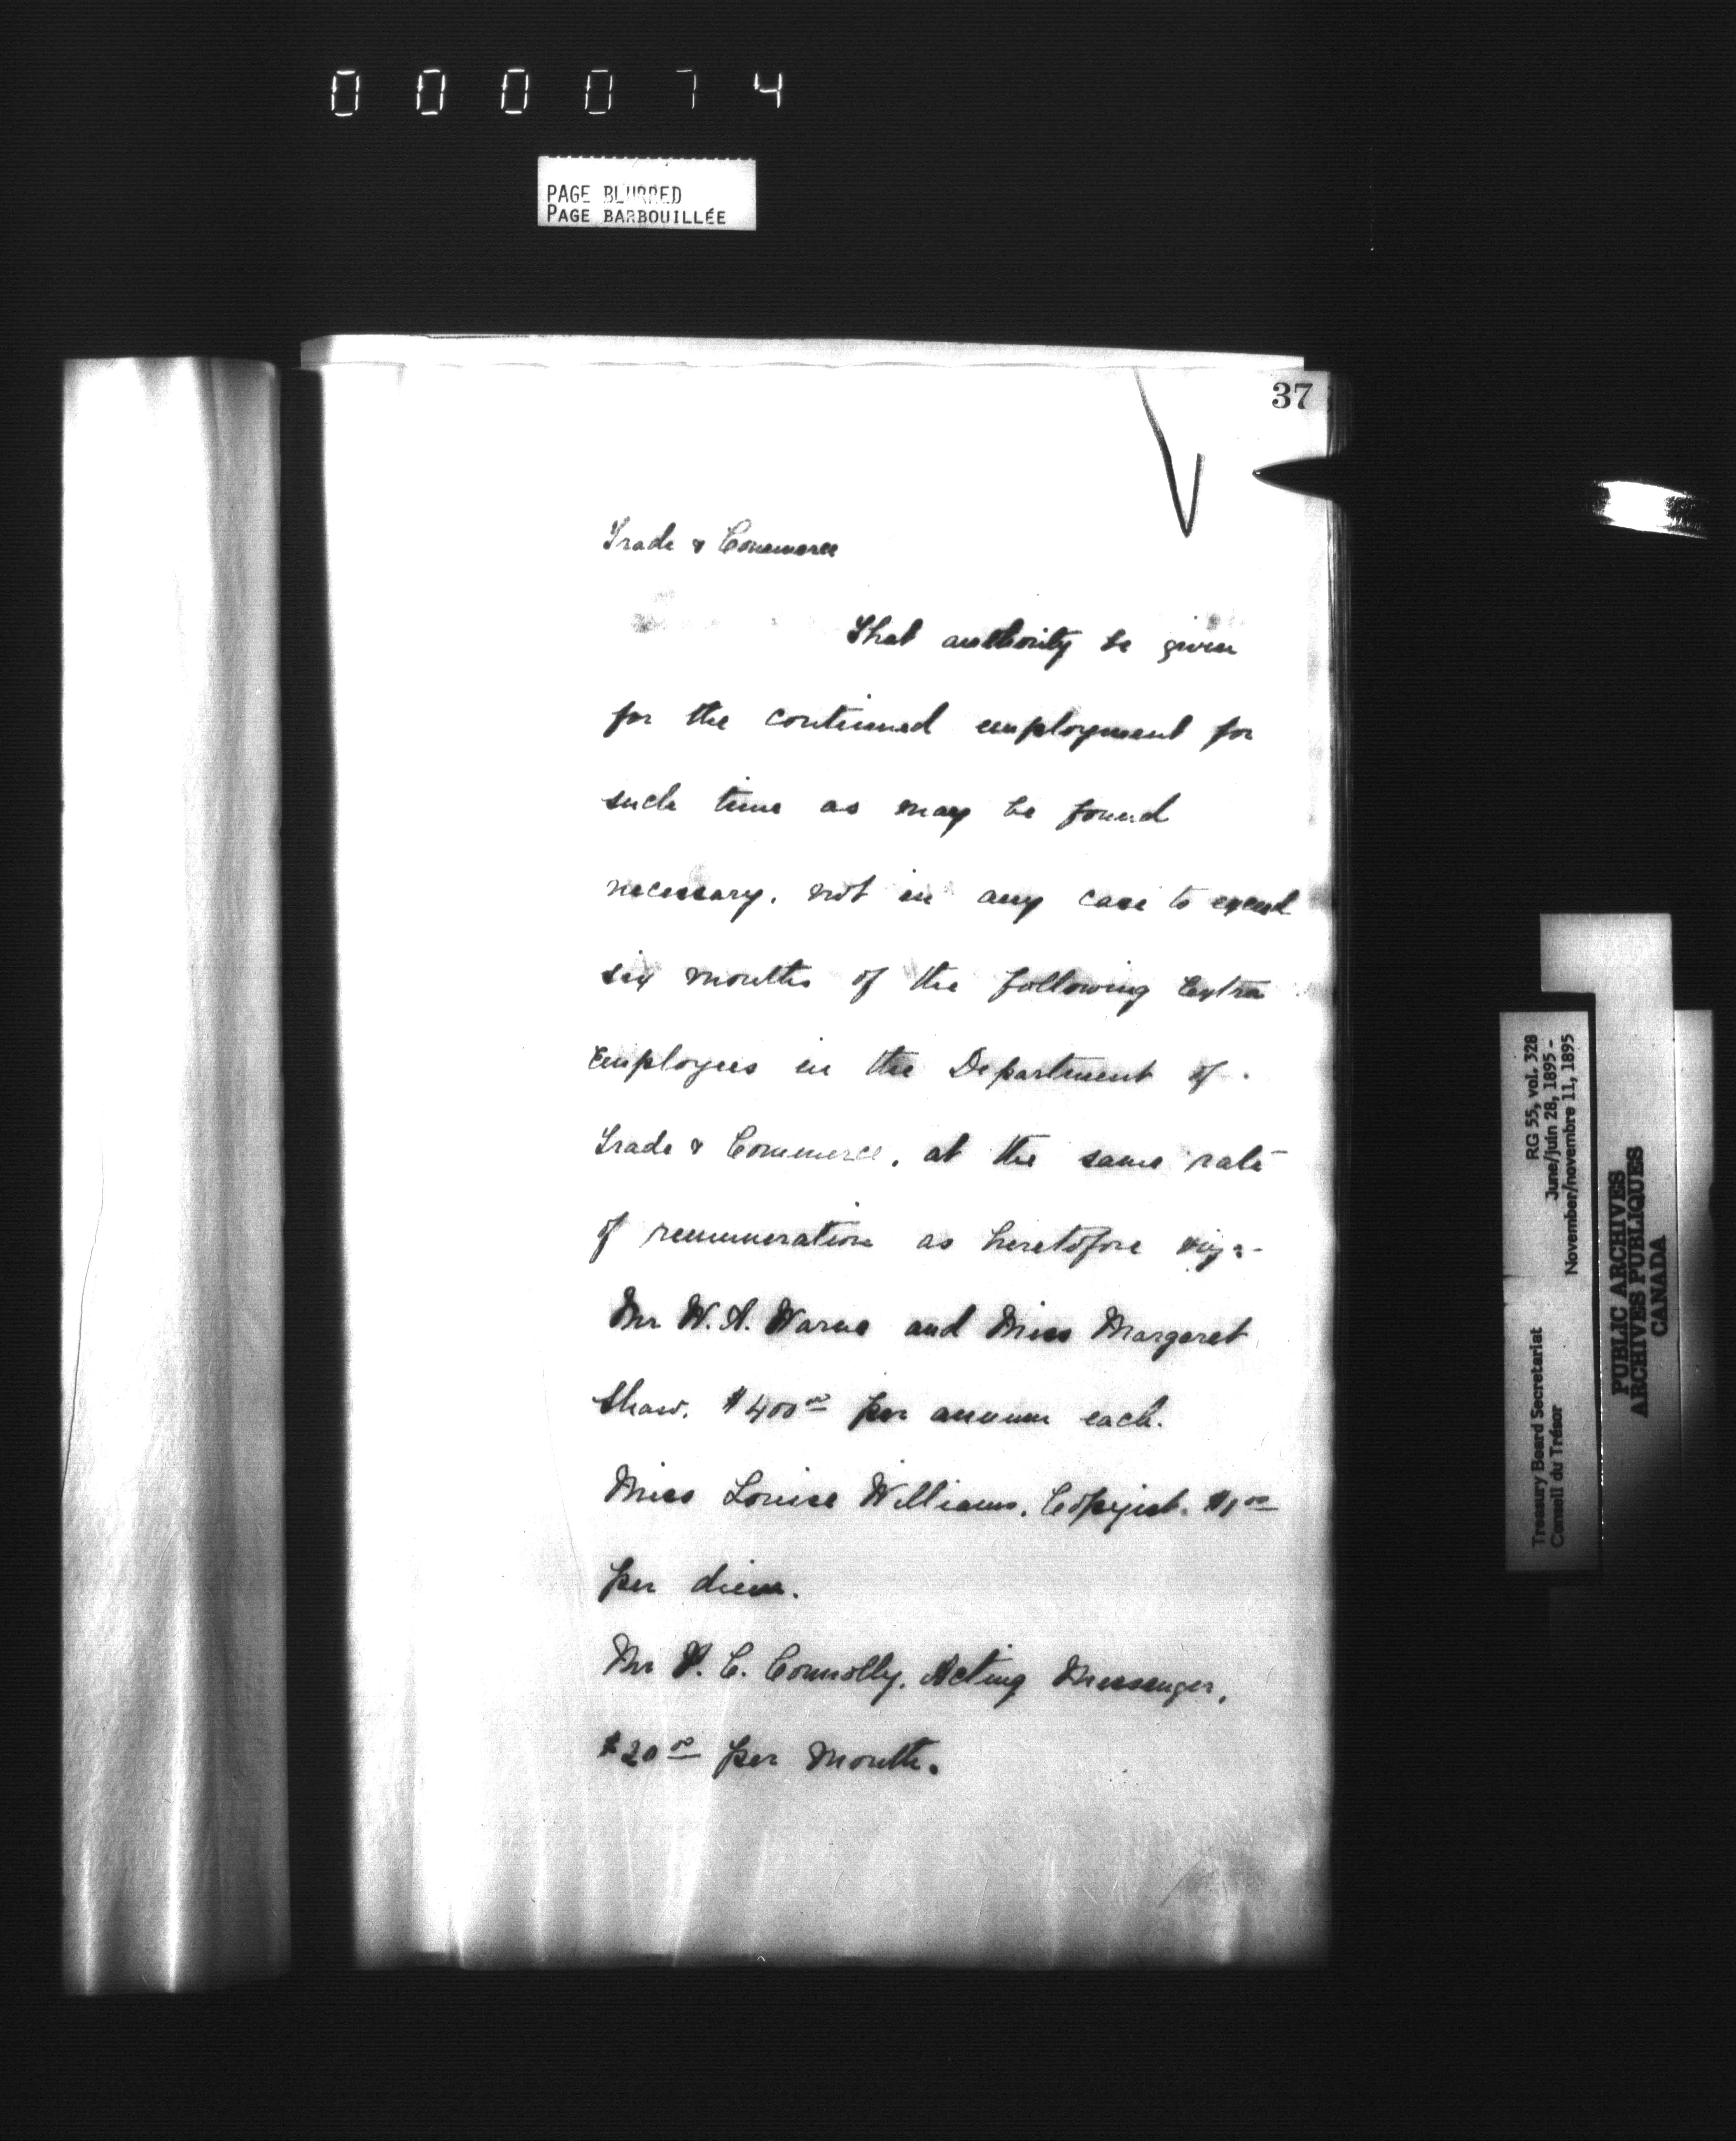 000074
PAGE BLURRED
PAGE BARBOUILLÉE
37
Trade & Commerce
That authority be given
for the continued employment for
such time as may be found
necessary, not in any case to exceed
six months of the following Extra
Employees in the Department of
Trade & Commerce, at the same rate
of remuneration as heretofore viz:-
Mr W. A. Warne and Miss Margaret
Shaw. $400 00 per annum each.
Miss Louise Williams, Copyist. $1 00
per diem.
Mr P. C. Connolly, Acting Messenger,
$20 00 per month.
Treasury Board Secretariat RG 55, vol. 328
Conseil du Trésor June/juin 28, 1895 -
November/novembre 11, 1895
PUBLIC ARCHIVES
ARCHIVES PUBLIQUES
CANADA